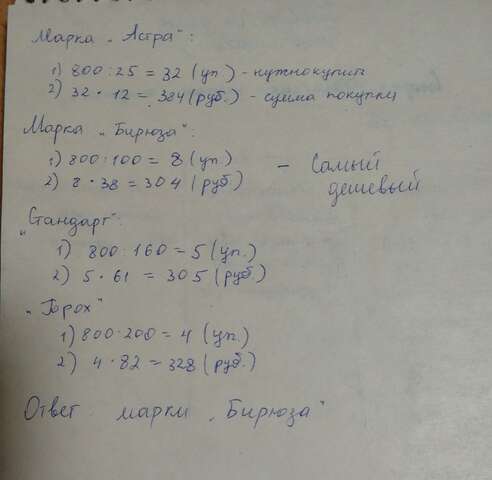 Марка „Астра":
1) 800:25 = 32 (уп.) - нужно купить
2) 32 · 12 = 384 (руб.) - сумма покупки
Марка „Бирюза":
1) 800:100 = 8 (уп.) - Самый
2) 8 · 38 = 304 (руб.) дешевый
„Стандарт":
1) 800:160 = 5 (уп.)
2) 5 · 61 = 305 (руб.)
„Горох"
1) 800:200 = 4 (уп.)
2) 4 · 82 = 328 (руб.)
Ответ: марки „Бирюза"